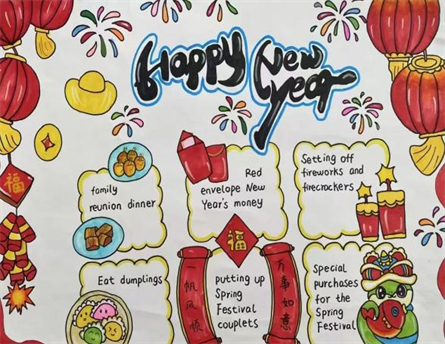 Happy New
Year
family
reunion dinner
Red
envelope New
Year's money
Setting off
fireworks and
firecrackers
福
福
Eat dumplings
一帆风顺
putting up
Spring
Festival
couplets
万事如意
Special
purchases
for the
Spring
Festival